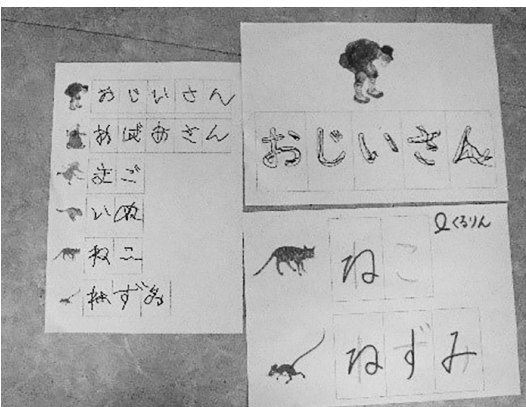 おじいさん
おばあさん
まご
いぬ
ねこ
ねずみ
おじいさん
くろりん
ねこ
ねずみ